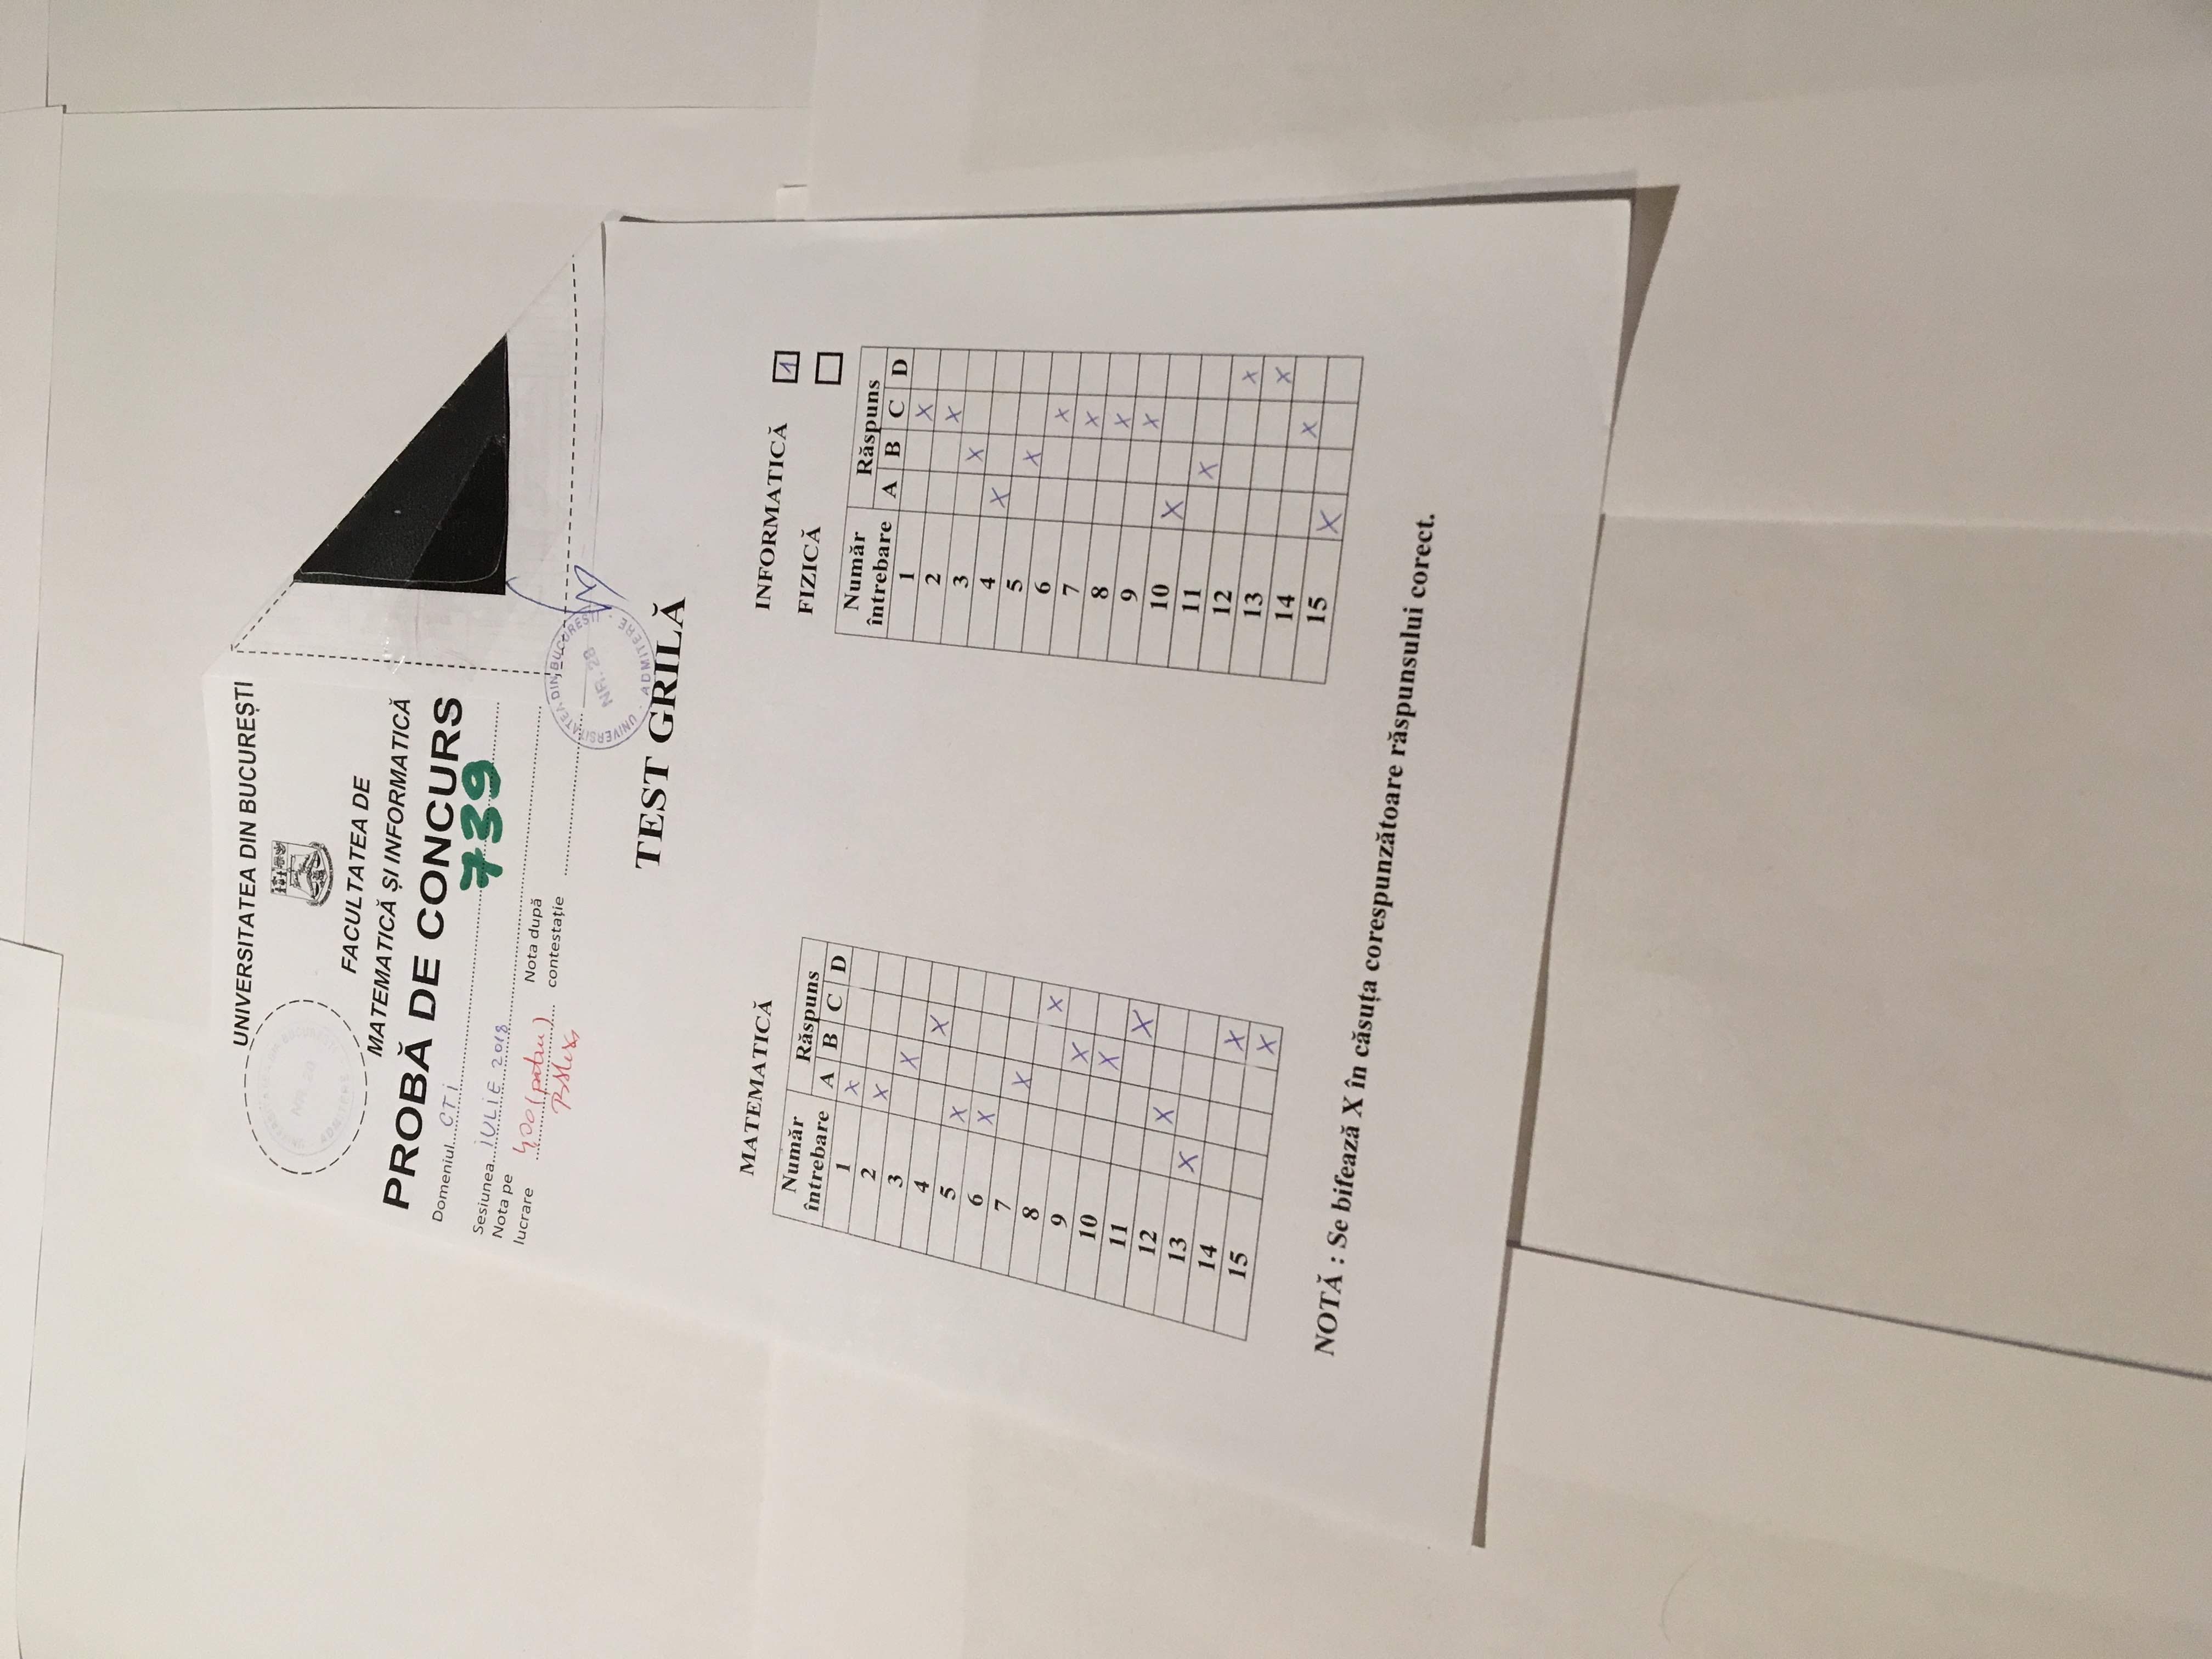 UNIVERSITATEA DIN BUCUREȘTI
UNIVERSITATEA DIN BUCUREȘTI
NR. 28
ADMITERE
FACULTATEA DE
MATEMATICĂ ȘI INFORMATICĂ
PROBĂ DE CONCURS
Domeniul CTi
739
Sesiunea iULiE 2018
Nota pe lucrare 4,00 (patru)
Nota după contestație
UNIVERSITATEA DIN BUCUREȘTI
NR. 28
ADMITERE
TEST GRILĂ
MATEMATICĂ
Număr întrebare Răspuns
A B C D
1 X
2 X
3 X
4 X
5 X
6 X
7 X
8 X
9 X
10 X
11 X
12 X
13 X
14 X
15 X
INFORMATICĂ 1
FIZICĂ
Număr întrebare Răspuns
A B C D
1 X
2 X
3 X
4 X
5 X
6 X
7 X
8 X
9 X
10 X
11 X
12 X
13 X
14 X
15 X
NOTĂ : Se bifează X în căsuța corespunzătoare răspunsului corect.